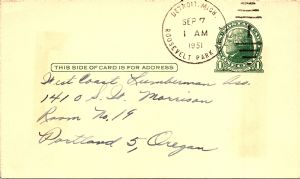 DETROIT, MICH.
SEP 7
1 AM
1951
ROOSEVELT PARK
THIS SIDE OF CARD IS FOR ADDRESS
West Coast Lumberman Ass.
1410 S.W. Morrison
Room No. 19
Portland 5, Oregon